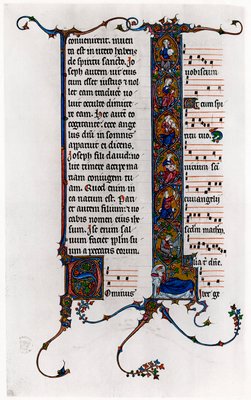 conuenirent. inuen
ta est in utero habens
de spiritu sancto. Jo
seph autem uir eius
cum esset iustus & nol
let eam traducere uo
luit occulte dimitte
re eam. Hec aute eo
cogitante: ecce ange
lus dni in somnis
apparuit ei dicens.
Joseph fili dauid: no
li timere accipe ma
riam coniugem tu
am. Quod enim in
ea natum est. Pari
et autem filium: & uo
cabis nomen eius ihe
sum. Ipse enim sal
uum faciet pplm su
um a peccatis eorum.
Dominus
uobiscum
Et cum spi
ritu tuo.
nicium sci
euangelij
scdm matheu.
dne.
iber ge